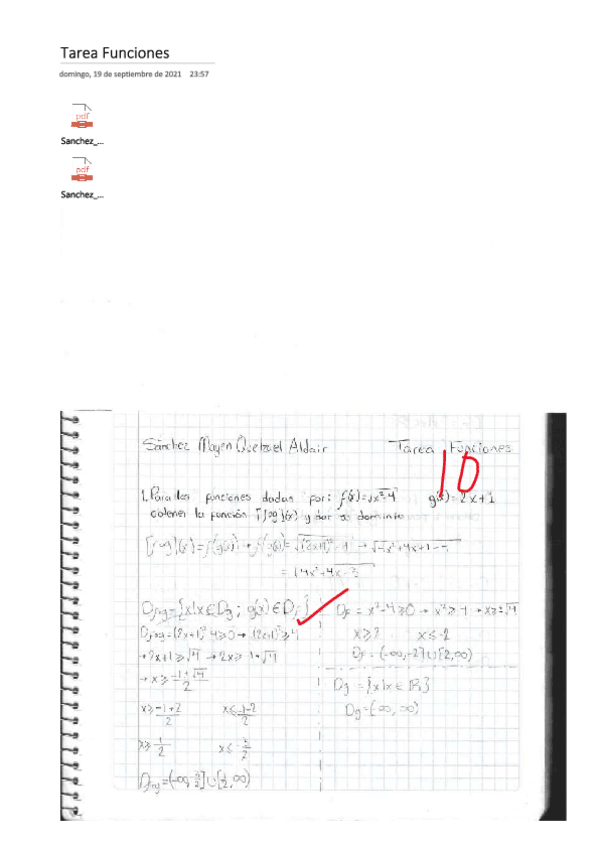 Tarea Funciones
domingo, 19 de septiembre de 2021 23:57
pdf
Sanchez_...
pdf
Sanchez_...
Sánchez Mayen Quetzel Aldair Tarea Funciones
10
1. Para las funciones dadas por: f(x)=√x²-4 g(x)=2x+1
obtener la función [fog](x) y dar su dominio
[fog](x)=f(g(x)) → f(g(x))=√(2x+1)²-4 → √4x²+4x+1-4
=√4x²+4x-3
Dfog={x|x∈Dg; g(x)∈Df}
Dfog=(2x+1)²-4≥0→(2x+1)²≥4
→2x+1≥√4 →2x≥-1±√4
→x≥ -1±√4/2
x≥ -1+2/2 x≤ -1-2/2
x≥ 1/2 x≤ -3/2
Dfog=(-∞,-3/2]∪[1/2,∞)
Df= x²-4≥0→x²≥4→x≥±√4
x≥2 x≤-2
Df=(-∞,-2]∪[2,∞)
Dg={x|x∈ℝ}
Dg=(-∞,∞)